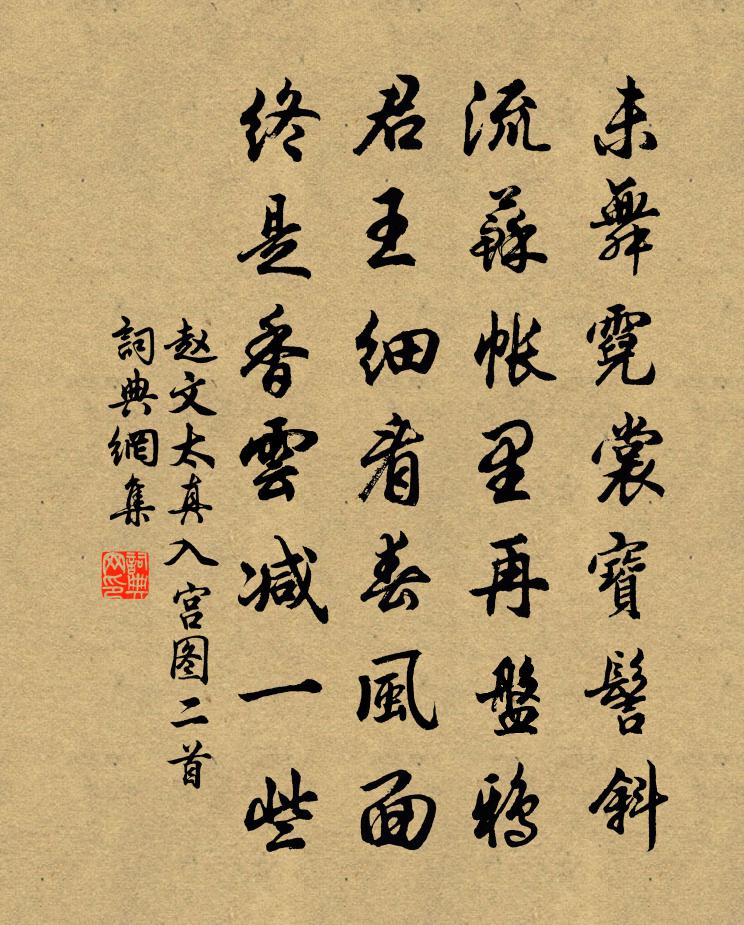 未舞霓裳寶髻斜
流蘇帳里再盤鴉
君王細看春風面
終是香雲减一些
赵文太真入宫图二首
詞典網集
詞典網印